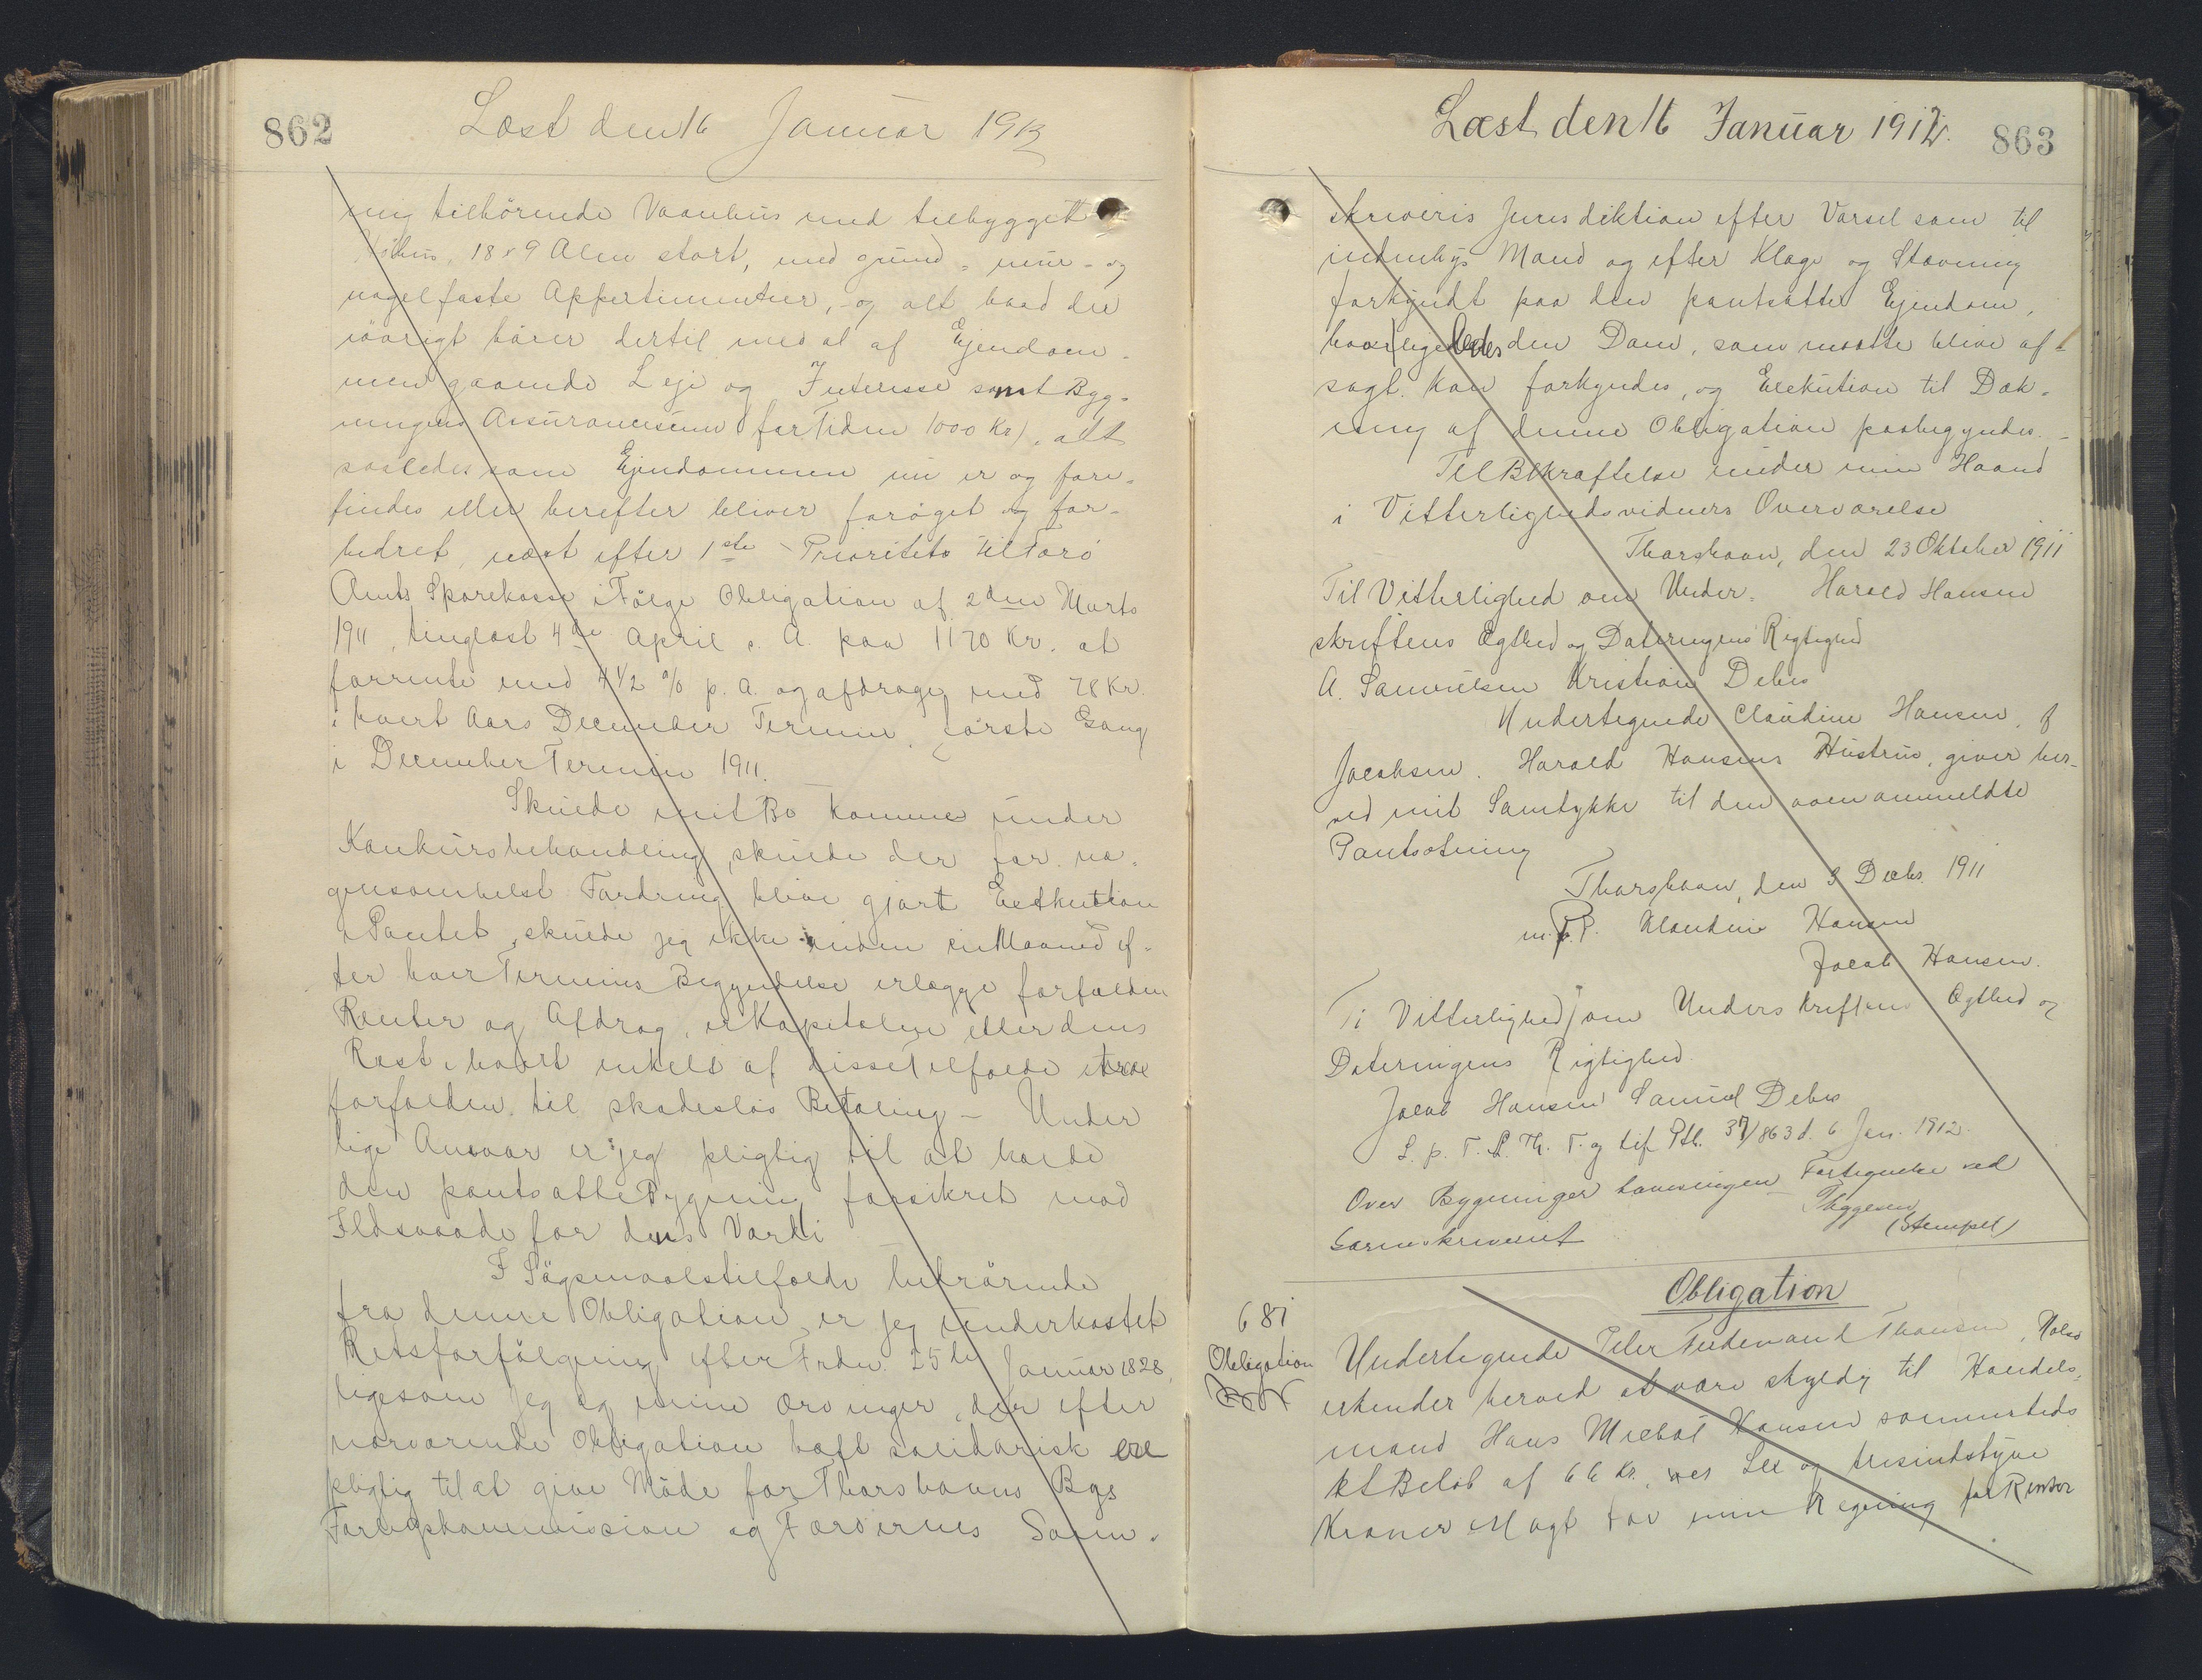 862
Læst den 16 Januar 1912
mig tilhörende Vaanhus med tilbygget
Udhus, 18 x 9 Alen stort, med grund-, mur- og
nagelfaste Appertinentier, og alt hvad der
iövrigt hörer dertil med al af Ejendom-
men gaaende Leje og Interesse samt Byg-
ningens Assurancesum (for Tiden 1000 Kr), alt
saaledes som Ejendommen nu er og fore-
findes eller herefter bliver foröget og for-
bedret, næst efter 1ste Prioritets til Færö
Amts Sparekasse i Fölge Obligation af 2den Marts
1911, tinglæst 4de April s. A. paa 1170 Kr. at
forrente med 4 1/2 % p. A. og afdrages med 78 Kr.
i hvert Aars December Termin, förste Gang
i December Termin 1911.
Skulde mit Bo komme under
Konkursbehandling, skulde der for no-
gensomhelst Fordring blive gjort Exekution
i Pantet, skulde jeg ikke inden een Maaned ef-
ter hver Termins Begyndelse erlægge forfalden
Renter og Afdrag, er Kapitalen eller dens
Rest i hvert enkelt af disse Tilfælde strax
forfalden til skadeslös Betaling - Under
lige Ansvar er jeg pligtig til at holde
den pantsatte Bygning forsikret mod
Ildsvaade for dens Værdi
I Sögsmaalstilfælde hidrörende
fra denne Obligation er jeg underkastet
Retsforfölgning efter Frdn. 25de Januar 1828,
ligesom jeg og mine Arvinger, der efter
nærværende Obligation haft solidarisk ere
pligtig til at give Möde for Thorshavns Bys
Forligskommission og Færöernes Soren-

Læst den 16 Januar 1912. 863
skriveris Jurisdiktion efter Varsel som til
indenbys Mand og efter Klage og Stævning
forkyndt paa den pantsatte Ejendom,
hvor ligeledes den Dom, som maatte blive af-
sagt kan forkyndes, og Exekution til Dæk-
ning af denne Obligation paabegyndes. -
Til Bekræftelse under min Haand
i Vitterlighedsvidners Overværelse
Thorshavn, den 23 Oktober 1911
Til Vitterlighed om Under- Harald Hansen
skriftens Ægthed og Dateringens Rigtighed
A. Samuelsen Kristian Debes
Undertegnede Claudine Hansen, f
Jacobsen. Harald Hansens Hustru, giver her-
ved mit Samtykke til den ovenanmeldte
Pantsætning
Thorshavn, den 9 Decbr. 1911
m. f. P. Klaudine Hansen
Jacob Hansen.
Ti Vitterlighed om Underskriftens Ægthed og
Dateringens Rigtighed.
Jacob Hansen Samuel Debes
L. p. T. f. Th. T. og tif Ptb. 37/863 d. 6 Jan. 1912.
Over Bygninger Fortegnelse ved
Sorenskriveriet
(Stempel)
Obligation
681
Obligation
Undertegnede Peter Ferdinand Thomsen, Nolsö
erkender herved at være skyldig til Handels-
mand Hans Michal Hansen sammesteds
et Belöb af 66 Kr. Sex og tresindstyve
Kroner Magt for min Regning for Renter